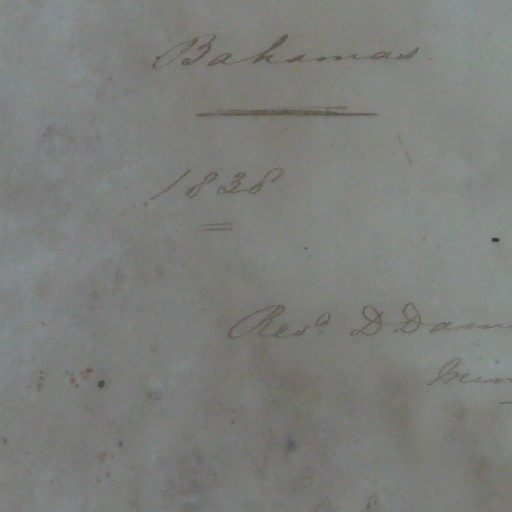 Bahamas.
1838.
Revd D Daw
Min